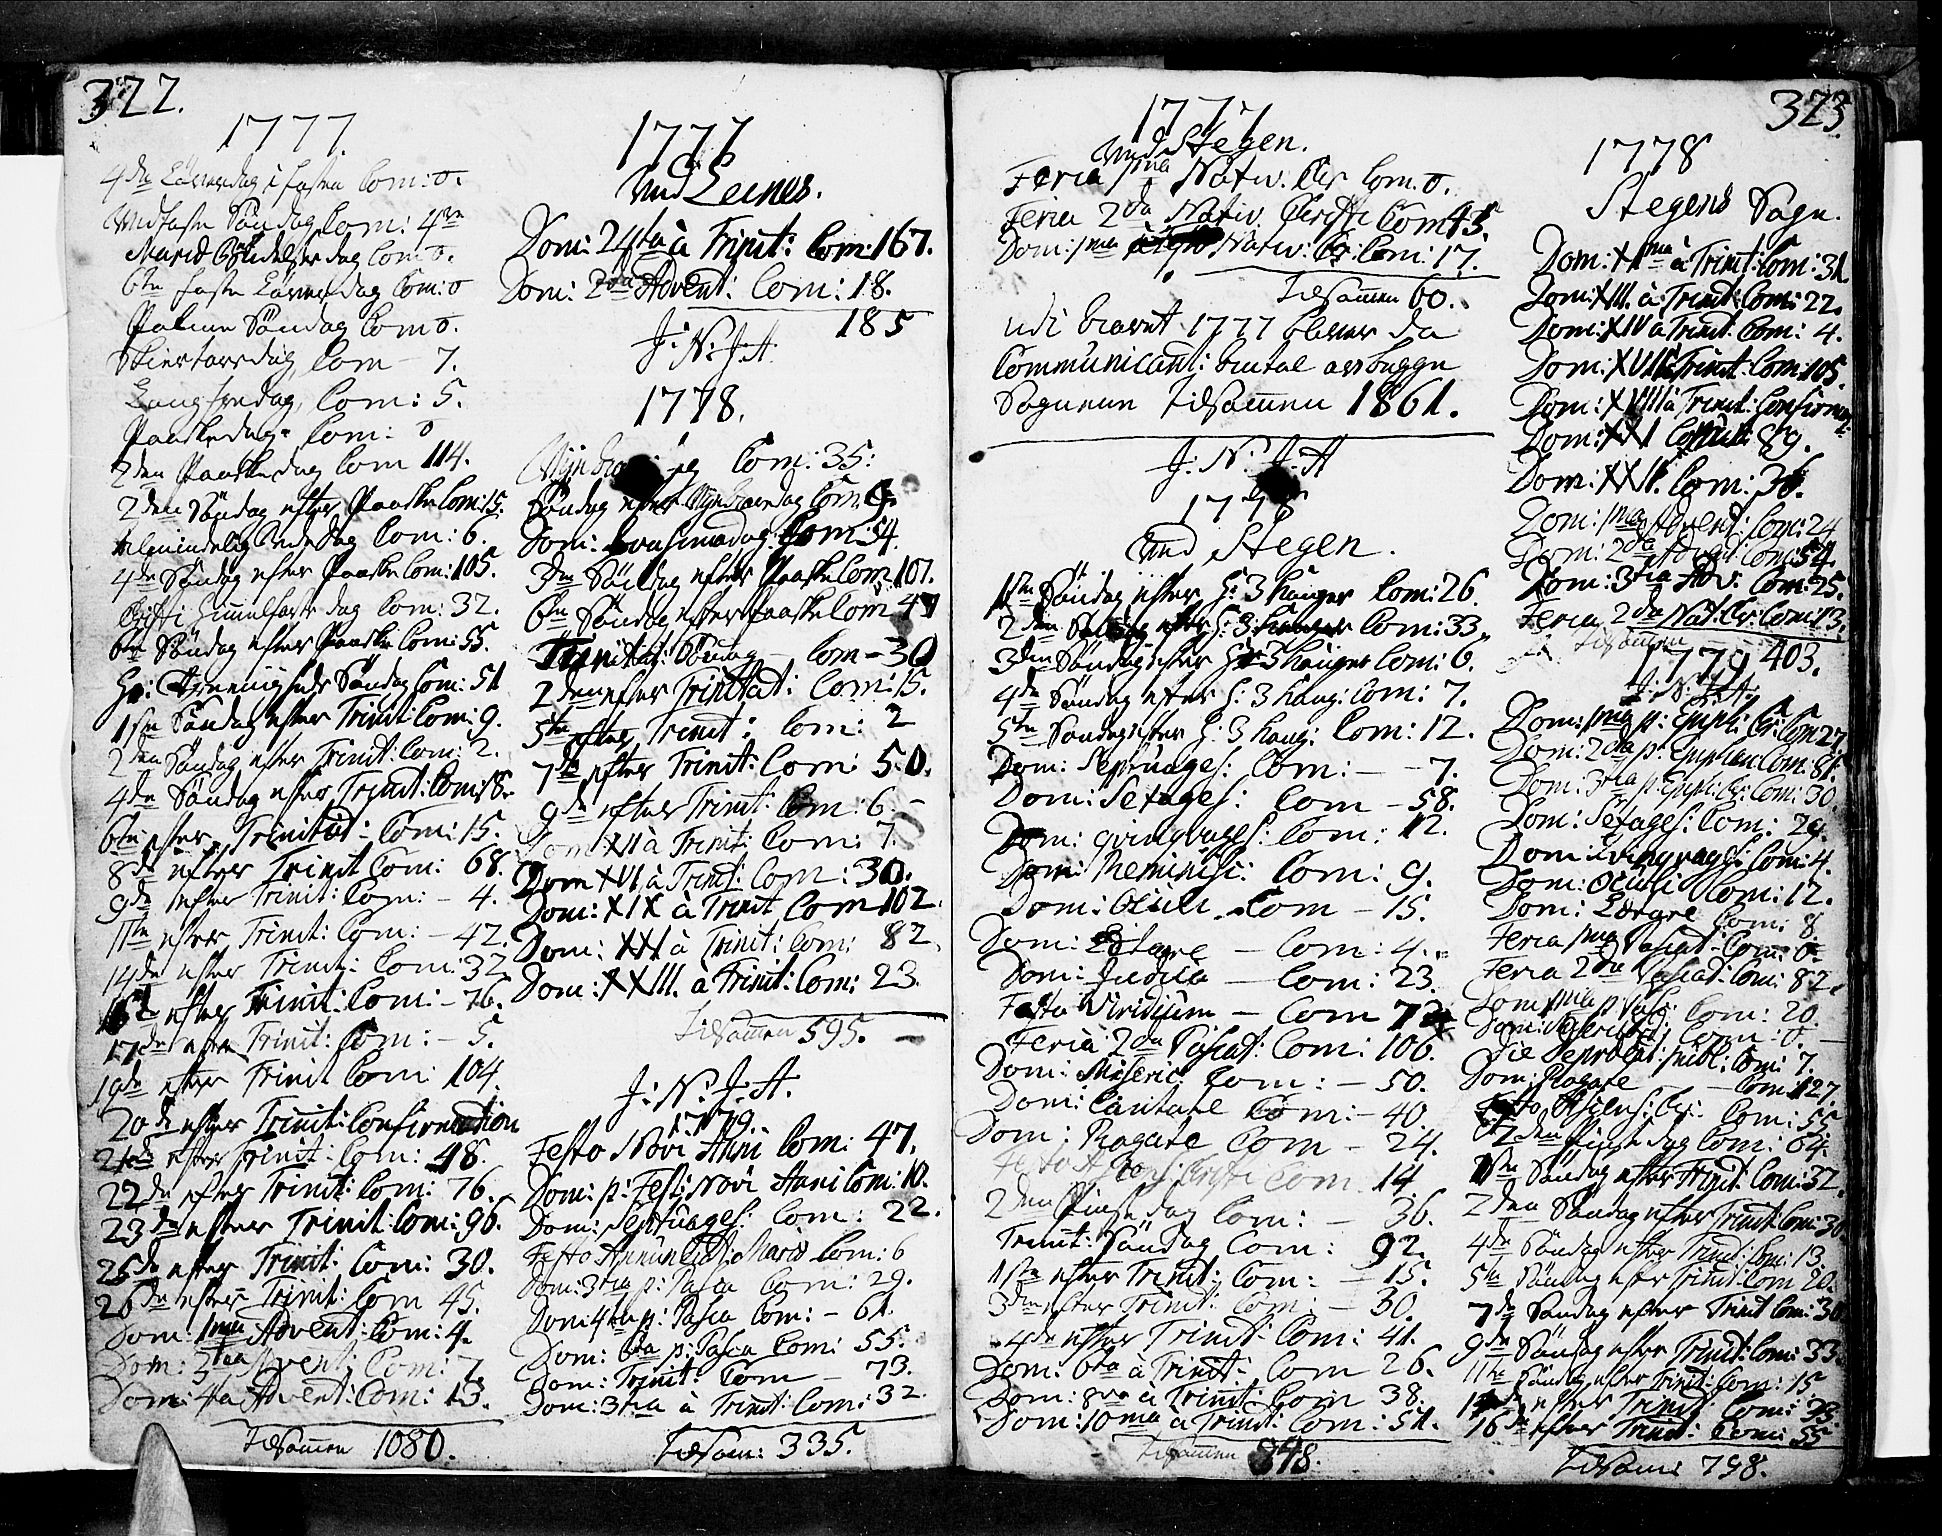 322.
1777.
4de Løverdag i Fasten Com: 0.
Midfaste Söndag Com: 4re
Mariæ Bebudelses dag Com 0.
6te Faste Løverdag Com: 0
Palme Söndag Com 0.
Skiertorsdag, Com - 7.
Langfredag, Com: 5.
Paaskedag. Com: 0
2den Paaskedag Com 114.
2den Söndag efter Paaske Com: 15.
Almindelig Bededag Com: 6.
4de Söndag efter Paaske Com: 105.
Christi Himmelfarts dag Com: 32.
6te Söndag efter Paaske Com: 55.
H: Treenigheds Söndag Com: 51
1ste Söndag efter Trinit: Com: 9.
2den Söndag efter Trinit: Com: 2.
4de Söndag efter Trinit: Com: 18.
6te efter Trinitat: Com: 15.
8de efter Trinit Com: 68.
9de efter Trinit: Com: - 4.
11te efter Trinit: Com: - 42.
14de efter Trinit: Com: 32.
16de efter Trinit: Com: - 76.
17de efter Trinit: Com: - 5.
19de efter Trinit Com: 104.
20de efter Trinit: Confirmation
21de efter Trinit: Com: 48.
22de efter Trinit: Com: 76.
23de efter Trinit: Com: 96.
25de efter Trinit: Com: 30.
26de efter Trinit: Com 45.
Dom: 1ma Advent: Com: 4.
Dom: 3tia Advent: Com: 7.
Dom: 4ta Advent: Com: 13.
Tilsammen 1080.
1777
Ved Leines.
Dom: 24ta à Trinit: Com: 167.
Dom: 2da Advent: Com: 18.
185
J: N: J: A
1778.
Com: 35:
Söndag efter Nytaarsdag Com:
Dom: Com: 54.
3die Söndag efter Paaske Com: 107.
6te Söndag efter Paaske Com
Trinitat: Söndag - Com - 30
2den efter Trinitat: Com: 15.
5te efter Trinit: Com: 2
7de efter Trinit: Com: 50.
9de efter Trinit: Com: 6. -
Dom XII à Trinit: Com: 7.
Dom XVI à Trinit: Com: 30.
Dom: XIX à Trinit Com 102.
Dom: XXI à Trinit: Com: 82.
Dom: XXIII. à Trinit: Com: 23.
Tilsammen 595. -
J: N: J: A.
1779.
Festo Novi Anni Com: 47.
Dom: p: Fest: Novi Anni Com: 10.
Dom: Septuages: Com: 22.
Festo Annunciat: Mariæ Com: 6
Dom: 3tia p: Pasca Com: 29.
Dom: 4ta p: Pasca Com: - 61.
Dom: 6ta p: Pasca Com: 55.
Dom: Trinit: Com - 73.
Dom: 3tia à Trinit: Com: 32
Tilsam: 335.
323
1777
Ved Stegen.
Feria 1ma Nativ. Chr Com. 0.
Feria 2da Nativ. Christi Com 43.
Dom: 1ma Nativ: Chr: Com: 17.
Tilsammen 60.
udi Aaret 1777 bliver da
Communicant: Antal av begge
Sognene Tilsammen 1861.
J: N: J: A
1778
Ved Stegen.
1ste Söndag efter H: 3 Konger Com: 26.
2den Söndag efter H: 3 Konger Com: 33.
3die Söndag efter H: 3 Konger Com: 6.
4de Söndag efter H: 3 Kong: Com: 7.
5te Söndag efter H: 3 Kong: Com: 12.
Dom: Septuages: Com: - - 7.
Dom: Sexages: Com - 58.
Dom: Qvinqvages: Com: 12.
Dom: Reminisc: Com: 9.
Dom: Oculi. Com - 15.
Dom: Lætare - Com: 4.
Dom: Judica - Com: 23.
Festo Viridium - Com 72
Feria 2da Pascat: Com: 106.
Dom: Miseric: Com: - 50.
Dom: Cantate Com: - 40.
Dom: Rogate Com - 24.
Festo Ascens: Christi Com. 14
2den Pinse dag Com: - 36.
Trinit: Söndag Com: 92.
1ste efter Trinit: Com: - 15.
3die efter Trinit: Com: - 30.
4de efter Trinit: Com: 41.
Dom: 6ta à Trinit: Com 26.
Dom: 8va à Trinit: Com 38.
Dom: 10ma à Trinit: Com: 51.
Tilsammen 848.
1778
Stegens Sogn.
Dom: XIma à Trinit: Com: 31.
Dom: XIII. à Trinit: Com: 22.
Dom: XIV à Trinit: Com: 4.
Dom: XVII à Trinit: Com: 105.
Dom: XVIII à Trinit: Confirmat:
Dom: XXI Com: 89.
Dom: XXII. Com: 36.
Dom: 1ma Advent: Com: 24
Dom: 2da Advent Com: 54.
Dom: 3tia Adv. Com: 25.
Feria 2da Nat: Chr: Com: 13.
Tilsammen - 403.
1779
J: N: J: A.
Dom: 1ma p: Epiph: Chr: Com 27.
Dom: 2da p: Epiphan Com: 81.
Dom: 3tia p: Epiph: Chr: Com: 30.
Dom: Sexages: Com: 29.
Dom: Qvinqvages: Com: 4.
Dom: Oculi Com: 12.
Dom: Lætare Com: 8
Feria 1ma Pascat: Com: 0
Feria 2da Pascat: Com: 82.
Dom 1ma p Pasc: Com: 20.
Dom: Misericord: Com - 0. -
Die Deprecat: publ: Com: 7.
Dom: Rogate - Com: 127.
Festo Ascens: Chr: Com: 55.
2den Pinse dag Com: 64.
1ste Söndag efter Trinit: Com: 32.
2den Söndag efter Trinit: Com: 30
4de Söndag efter Trinit: Com: 13.
5te Söndag efter Trinit: Com 20.
7de Söndag efter Trinit Com: 30
9de Söndag efter Trinit: Com: 33.
11te Söndag efter Trinit: Com: 15.
efter Trinit: Com: 33.
16de efter Trinit: Com: 55
Tilsam: 798.